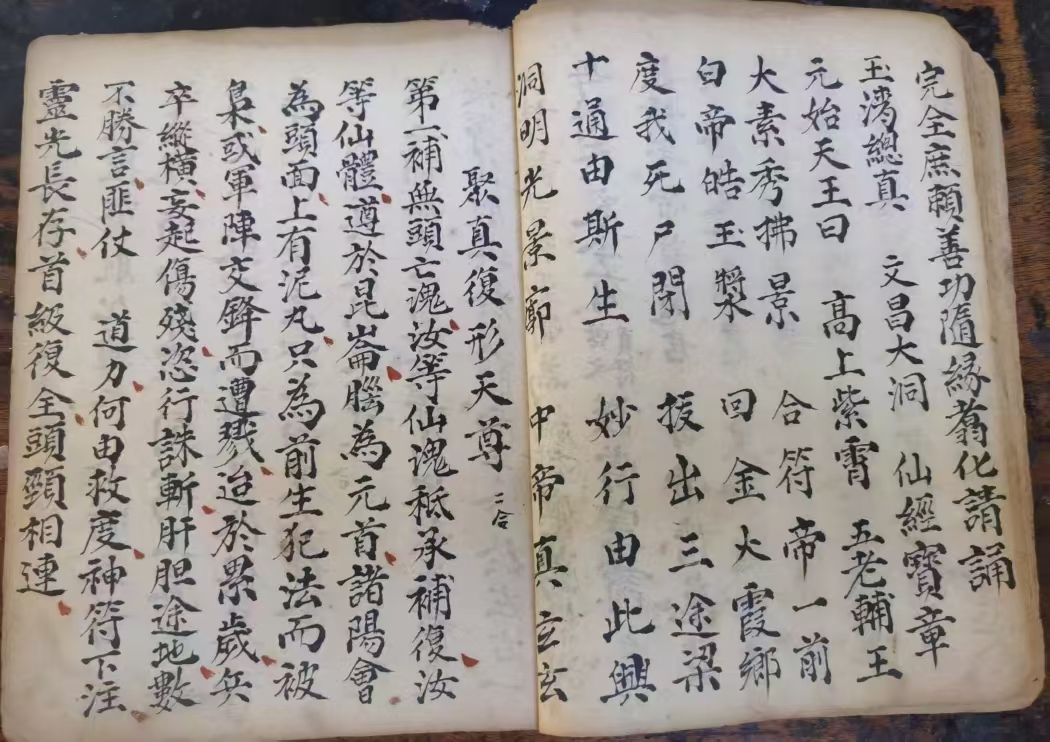 完全庶頼善功隨緣翥化請誦
玉清總真 文昌大洞 仙經寶章
元始天王曰 高上紫霄 五老輔王
大素秀拂景 合符帝一前
白帝皓玉漿 回金火霞鄉
度我死尸閉 拔出三途梁
十通由斯生 妙行由此興
洞明光景廓 中帝真玄玄
聚真復形天尊 二合
第一補無頭亡魂汝等仙魂秪承補復汝
等仙體遵於昆崙腦為元首諸陽會
為頭面上有泥丸只為前生犯法而被
梟或軍陣交鋒而遭戮迨於累歲兵
卒縱橫妄起傷殘恣行誅斬肝胆途地數
不勝言匪仗 道力何由救度神符下注
靈光長存首級復全頭頸相連